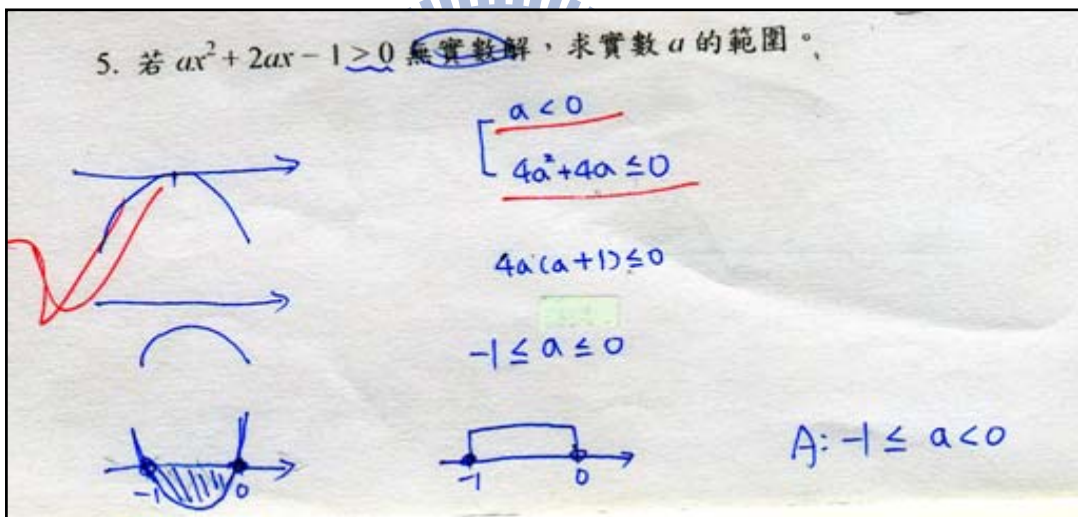 5. 若 ax² + 2ax − 1 > 0 無實數解，求實數 a 的範圍。
a < 0
4a²+4a ≤ 0
4a(a+1) ≤ 0
-1 ≤ a ≤ 0
-1 0
-1 0
A: -1 ≤ a < 0